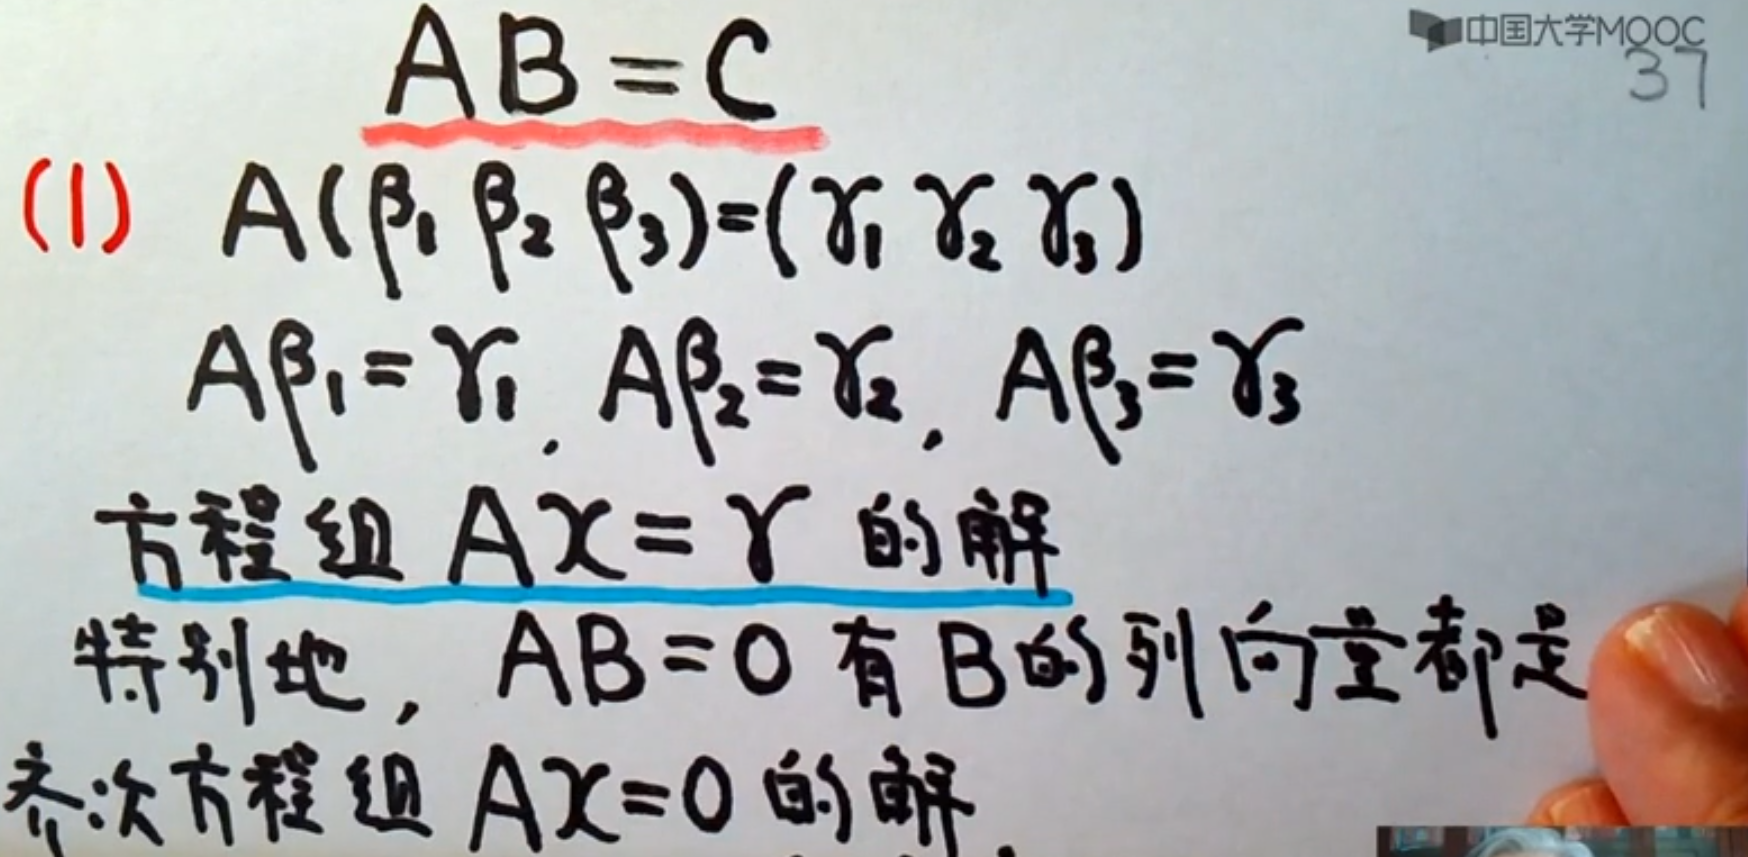 AB=C
中国大学MOOC
37
(1) A(β₁ β₂ β₃)=(γ₁ γ₂ γ₃)
Aβ₁=γ₁, Aβ₂=γ₂, Aβ₃=γ₃
方程组 Ax=γ 的解
特别地, AB=0 有 B的列向量都是
齐次方程组 Ax=0 的解.